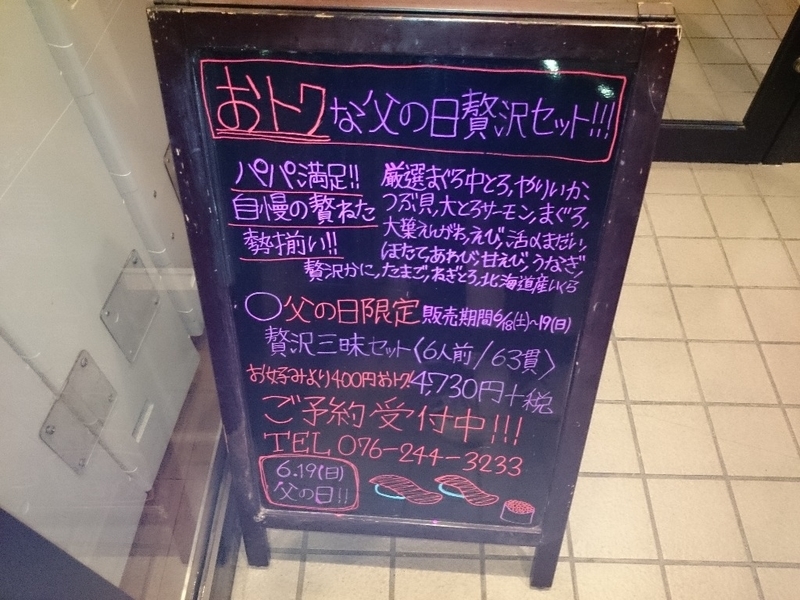 おトクな父の日贅沢セット!!!
パパ満足!!
自慢の贅ねた
勢揃い!!
厳選まぐろ中とろ,やりいか,
つぶ貝,大とろサーモン,まぐろ,
大葉えんがわ,えび,活〆まだい,
ほたて,あわび,甘えび,うなぎ,
贅沢かに,たまご,ねぎとろ,北海道産いくら
○父の日限定 販売期間6/18(土)~19(日)
贅沢三昧セット〈6人前/63貫〉
お好みより400円おトク! 4,730円+税
ご予約受付中!!!
TEL 076-244-3233
6.19(日)
父の日!!